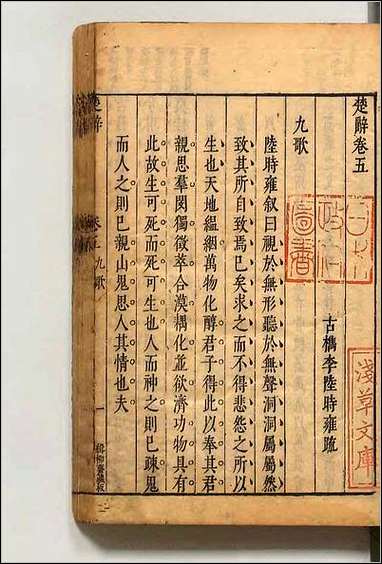 楚辭卷五
古檇李陸時雍疏
九歌
陸時雍叙曰視於無形聽於無聲洞洞屬屬然
致其所自致焉已矣求之而不得悲怨之所以
生也天地緼絪萬物化醇君子得此以奉其君
親思羣閔獨微萃合漠構化並欲濟功物具有
此故生可死而死可生也人而神之則已疎鬼
而人之則已親山鬼思人其情也夫
楚辭
卷五 九歌
一
緝柳齋藏板
淺草文庫
圖書